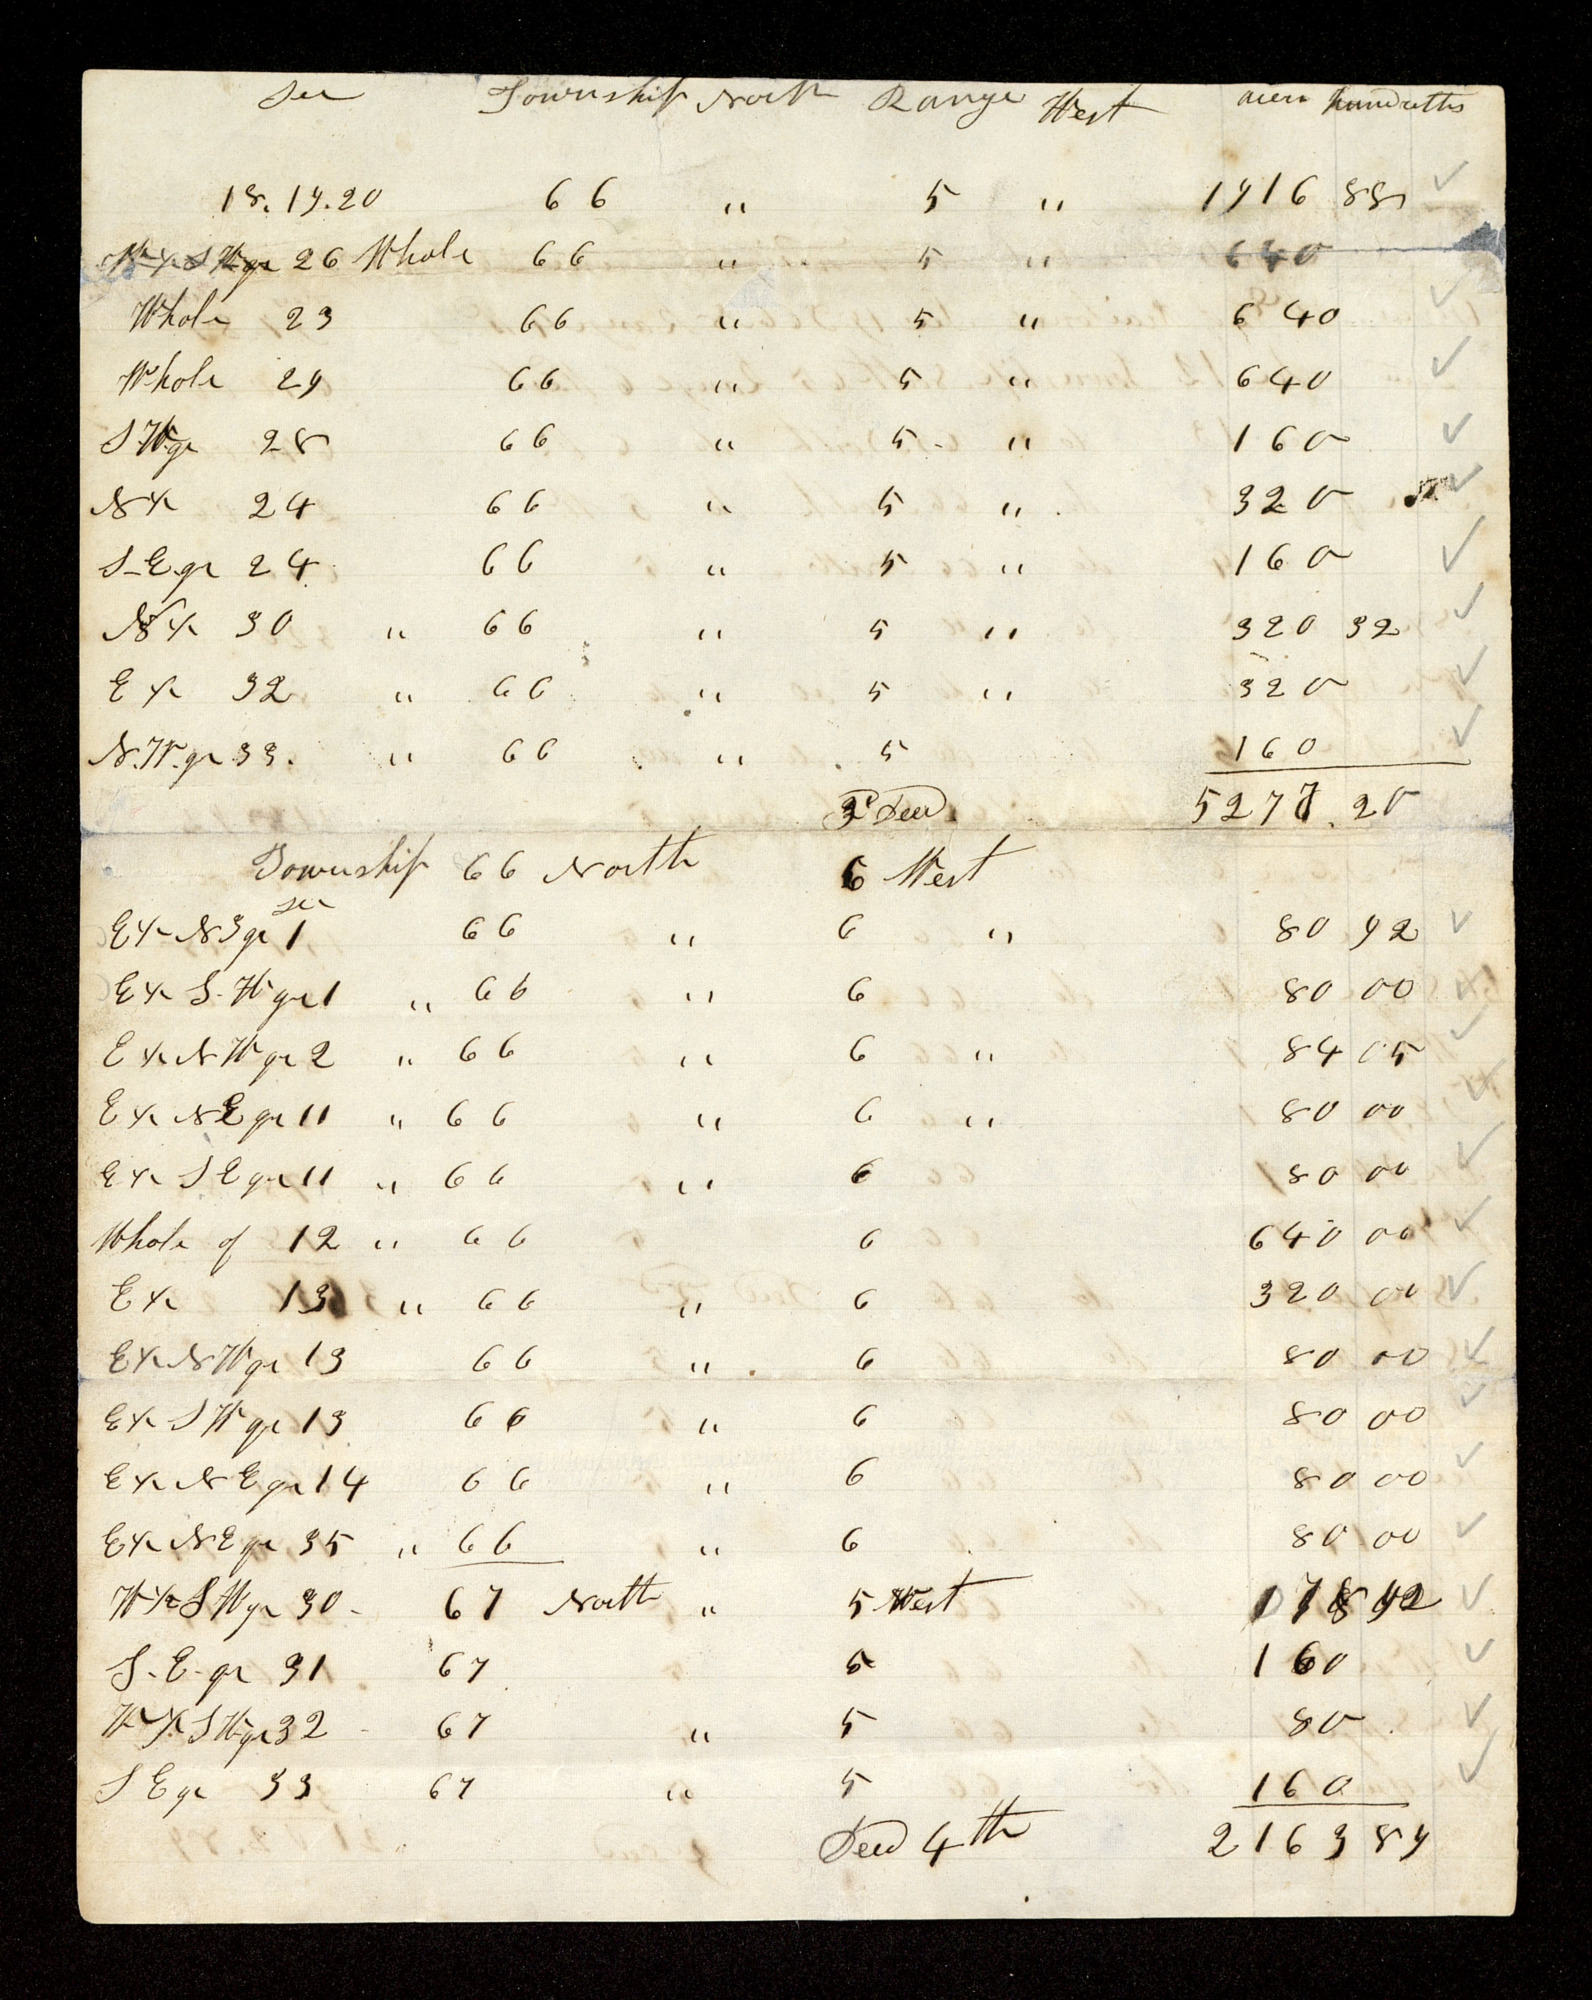 Sec Township North Range West acers hundreths
18. 19. 20 66 " 5 " 1916 88
W ½ S W qr 26 Whole 66 " 5 " 640
Whole 23 66 " 5 " 640
Whole 29 66 " 5 " 640
S W qr 28 66 " 5 - " 160
N ½ 24 66 " 5 " 320
S- E. qr 24 66 " 5 " 160
N ½ 30 " 66 " 5 " 320 32
E ½ 32 " 66 " 5 " 320
N. W. qr 33. " 66 " 5 160
3d Deed 5277. 20
Township 66 North 6 West
sec
E ½ N E qr 1 66 " 6 " 80 92
E ½ S. W qr 1 " 66 " 6 80 00
E ½ N W qr 2 " 66 " 6 " 84 05
E ½ N E qr 11 " 66 " 6 " 80 00
E ½ S E qr 11 " 66 " 6 80 00
Whole of 12 " 66 6 640 00
E ½ 13 " 66 " 6 320 00
E ½ N W qr 13 66 " 6 80 00
E ½ S W qr 13 66 " 6 80 00
E ½ N E qr 14 66 " 6 80 00
E ½ N E qr 35 " 66 " 6 80 00
W ½ S W qr 30 - 67 North " 5 West 178 92
S. E. qr 31 67 5 160
W ½ S W qr 32 - 67 " 5 80
S E qr 33 67 " 5 160
Deed 4th 2163 89